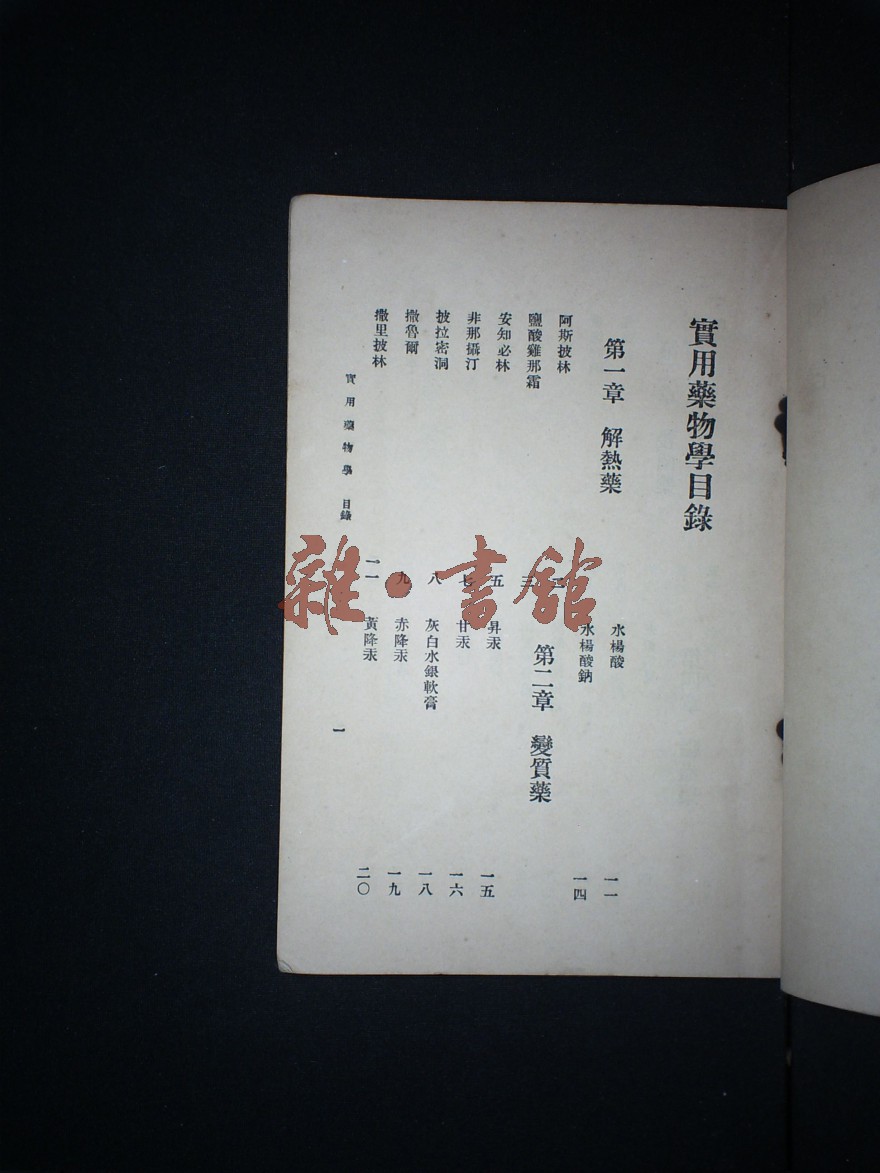 實用藥物學目錄
第一章　解熱藥
阿斯披林　二
鹽酸雞那霜　三
安知必林　五
非那攝汀　七
披拉密洞　八
撒魯爾　九
撒里披林　一一
水楊酸　一一
水楊酸鈉　一四
第二章　變質藥
昇汞　一五
甘汞　一六
灰白水銀軟膏　一八
赤降汞　一九
黃降汞　二〇
實用藥物學　目錄　一
雜·書館